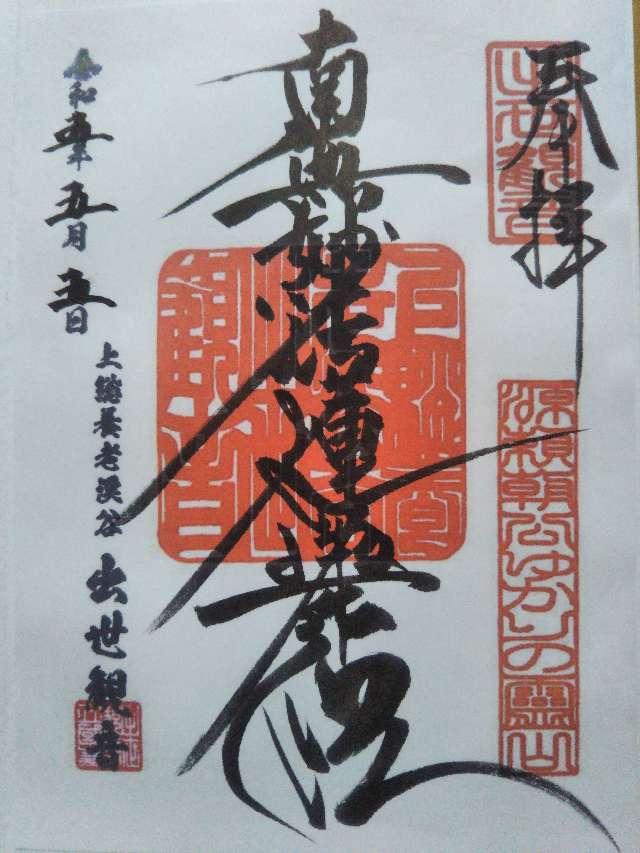 奉拝
出世観音
源頼朝公ゆかりの靈山
南無妙法蓮華経
令和五年五月五日
上総養老渓谷 出世観音